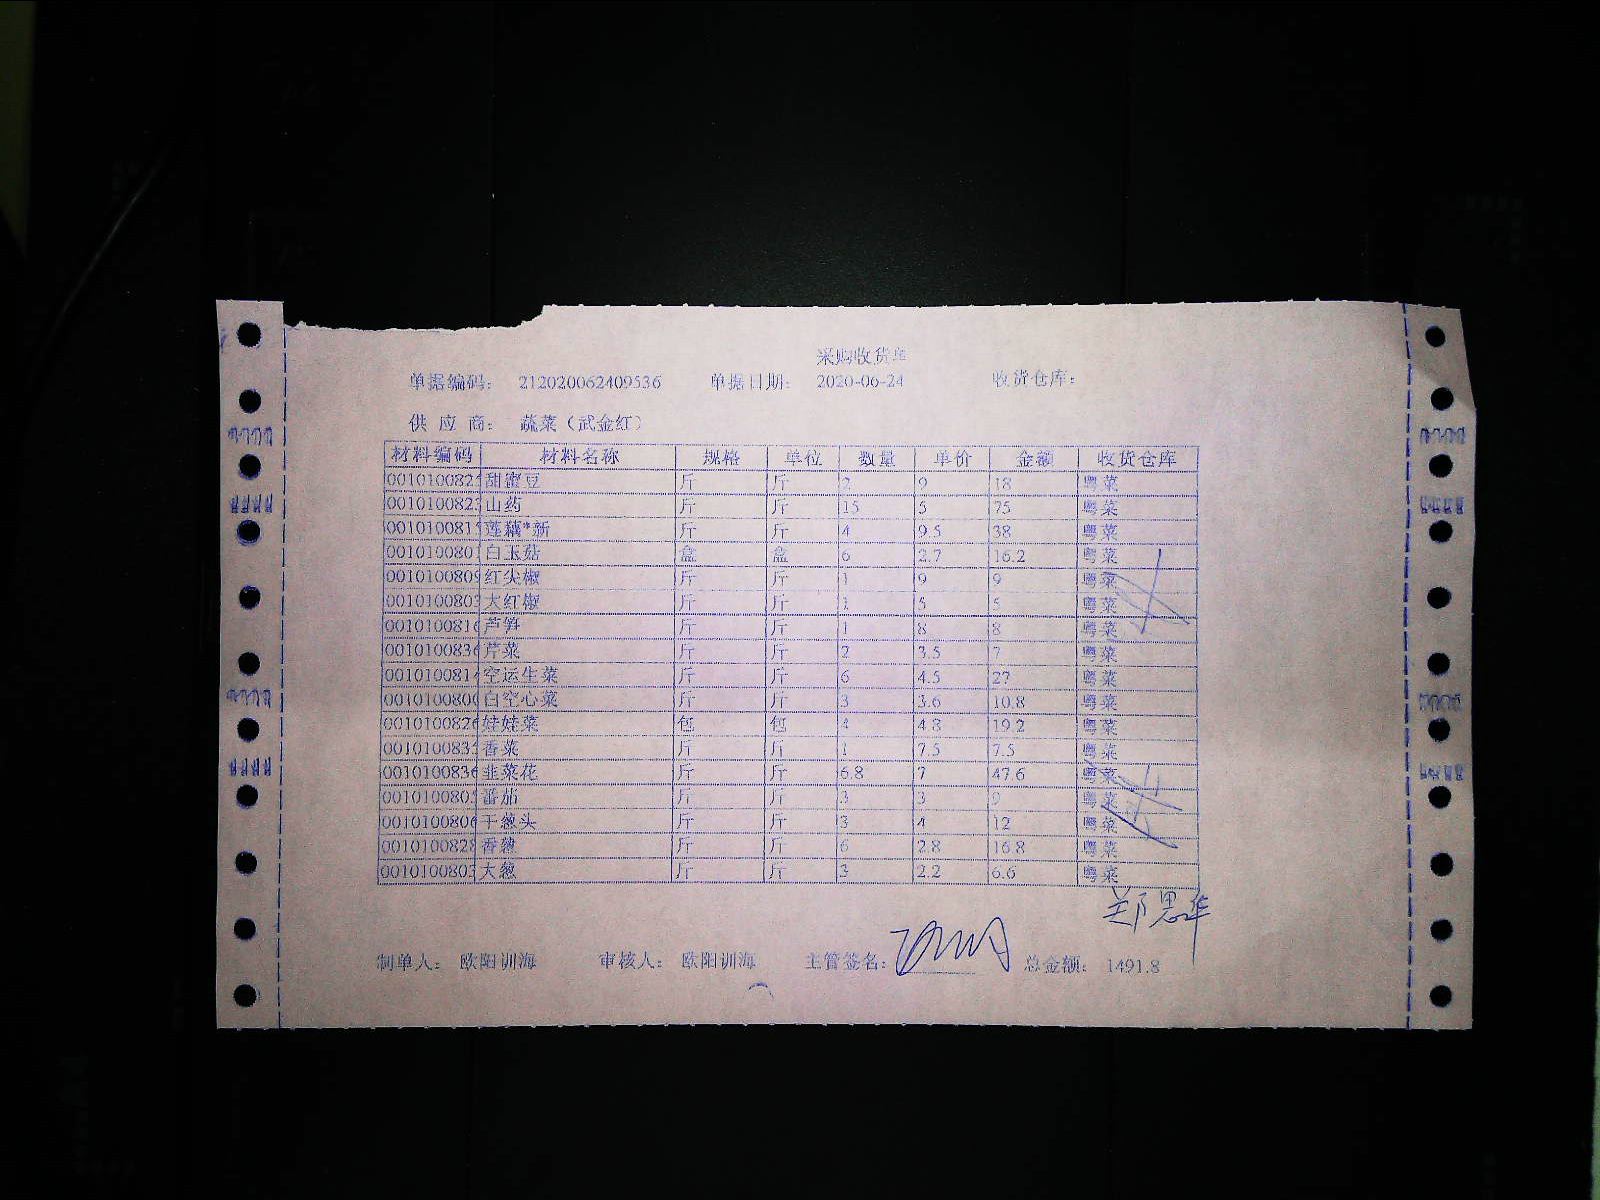 采购收货单
单据编码： 212020062409536 单据日期： 2020-06-24 收货仓库：
供 应 商： 蔬菜（武金红）
材料编码 材料名称 规格 单位 数量 单价 金额 收货仓库
001010082 甜蜜豆 斤 斤 2 9 18 粤菜
001010082 山药 斤 斤 15 5 75 粤菜
001010081 莲藕*新 斤 斤 4 9.5 38 粤菜
001010080 白玉菇 盒 盒 6 2.7 16.2 粤菜
001010080 红尖椒 斤 斤 1 9 9 粤菜
001010080 大红椒 斤 斤 1 5 5 粤菜
001010081 芦笋 斤 斤 1 8 8 粤菜
001010083 芹菜 斤 斤 2 3.5 7 粤菜
001010081 空运生菜 斤 斤 6 4.5 27 粤菜
001010080 白空心菜 斤 斤 3 3.6 10.8 粤菜
001010082 娃娃菜 包 包 4 4.8 19.2 粤菜
001010083 香菜 斤 斤 1 7.5 7.5 粤菜
001010083 韭菜花 斤 斤 6.8 7 47.6 粤菜
001010080 番茄 斤 斤 3 3 9 粤菜
001010080 干葱头 斤 斤 3 4 12 粤菜
001010082 香葱 斤 斤 6 2.8 16.8 粤菜
001010080 大葱 斤 斤 3 2.2 6.6 粤菜
郑思华
制单人： 欧阳训海 审核人： 欧阳训海 主管签名： 总金额： 1491.8